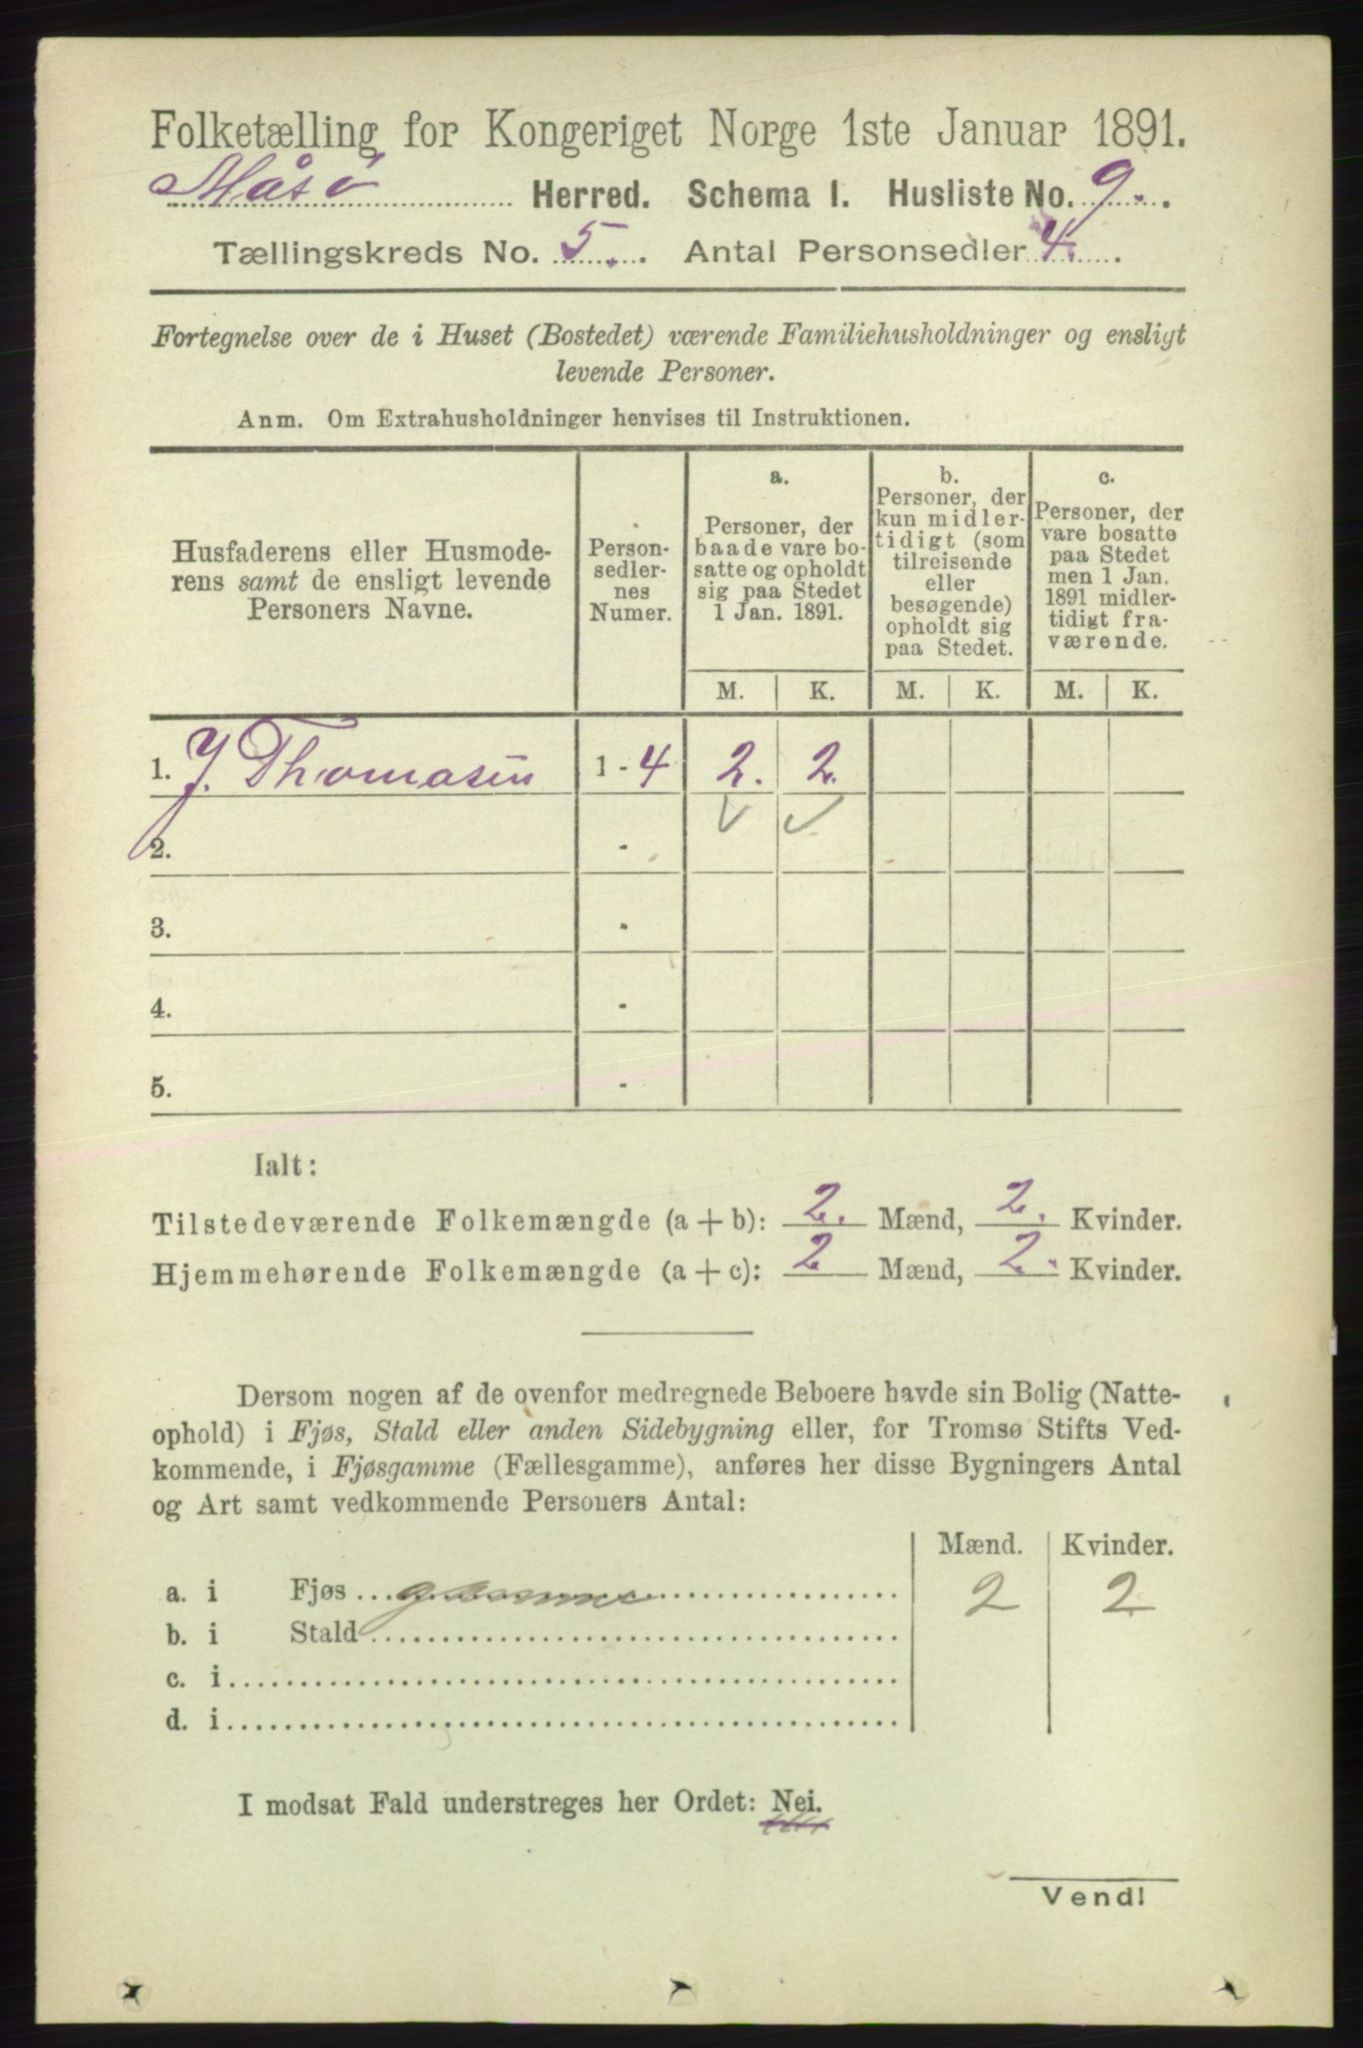 Folketælling for Kongeriget Norge 1ste Januar 1891.
Måsø Herred. Schema I. Husliste No. 9.
Tællingskreds No. 5. Antal Personsedler 4.
Fortegnelse over de i Huset (Bostedet) værende Familiehusholdninger og ensligt
levende Personer.
Anm. Om Extrahusholdninger henvises til Instruktionen.
Husfaderens eller Husmode-
rens samt de ensligt levende
Personers Navne.
Person-
sedler-
nes
Numer.
a.
Personer, der
baade vare bo-
satte og opholdt
sig paa Stedet
1 Jan. 1891.
b.
Personer, der
kun midler-
tidigt (som
tilreisende
eller
besøgende)
opholdt sig
paa Stedet.
c.
Personer, der
vare bosatte
paa Stedet
men 1 Jan.
1891 midler-
tidigt fra-
værende.
M. K. M. K. M. K.
1. J. Thomasen 1 - 4 2. 2.
2. -
3. -
4. -
5. -
Ialt:
Tilstedeværende Folkemængde (a + b): 2. Mænd, 2. Kvinder.
Hjemmehørende Folkemængde (a + c): 2 Mænd, 2. Kvinder.
Dersom nogen af de ovenfor medregnede Beboere havde sin Bolig (Natte-
ophold) i Fjøs, Stald eller anden Sidebygning eller, for Tromsø Stifts Ved-
kommende, i Fjøsgamme (Fællesgamme), anføres her disse Bygningers Antal
og Art samt vedkommende Personers Antal:
Mænd. Kvinder.
a. i Fjøs gamme 2 2
b. i Stald
c. i
d. i
I modsat Fald understreges her Ordet: Nei.
Vend!